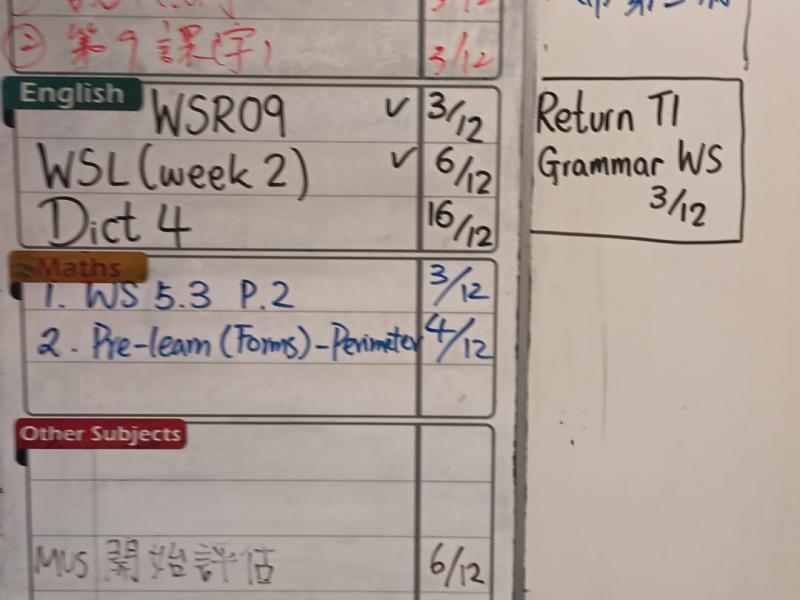 3/12
② 第9課(字) 3/12
English
WSR09 ✓ 3/12
WSL (week 2) ✓ 6/12
Dict 4 16/12
Return T1
Grammar WS
3/12
Maths
1. WS 5.3 P.2 3/12
2. Pre-learn (Forms) - Perimeter 4/12
Other Subjects
MUS 開始評估 6/12